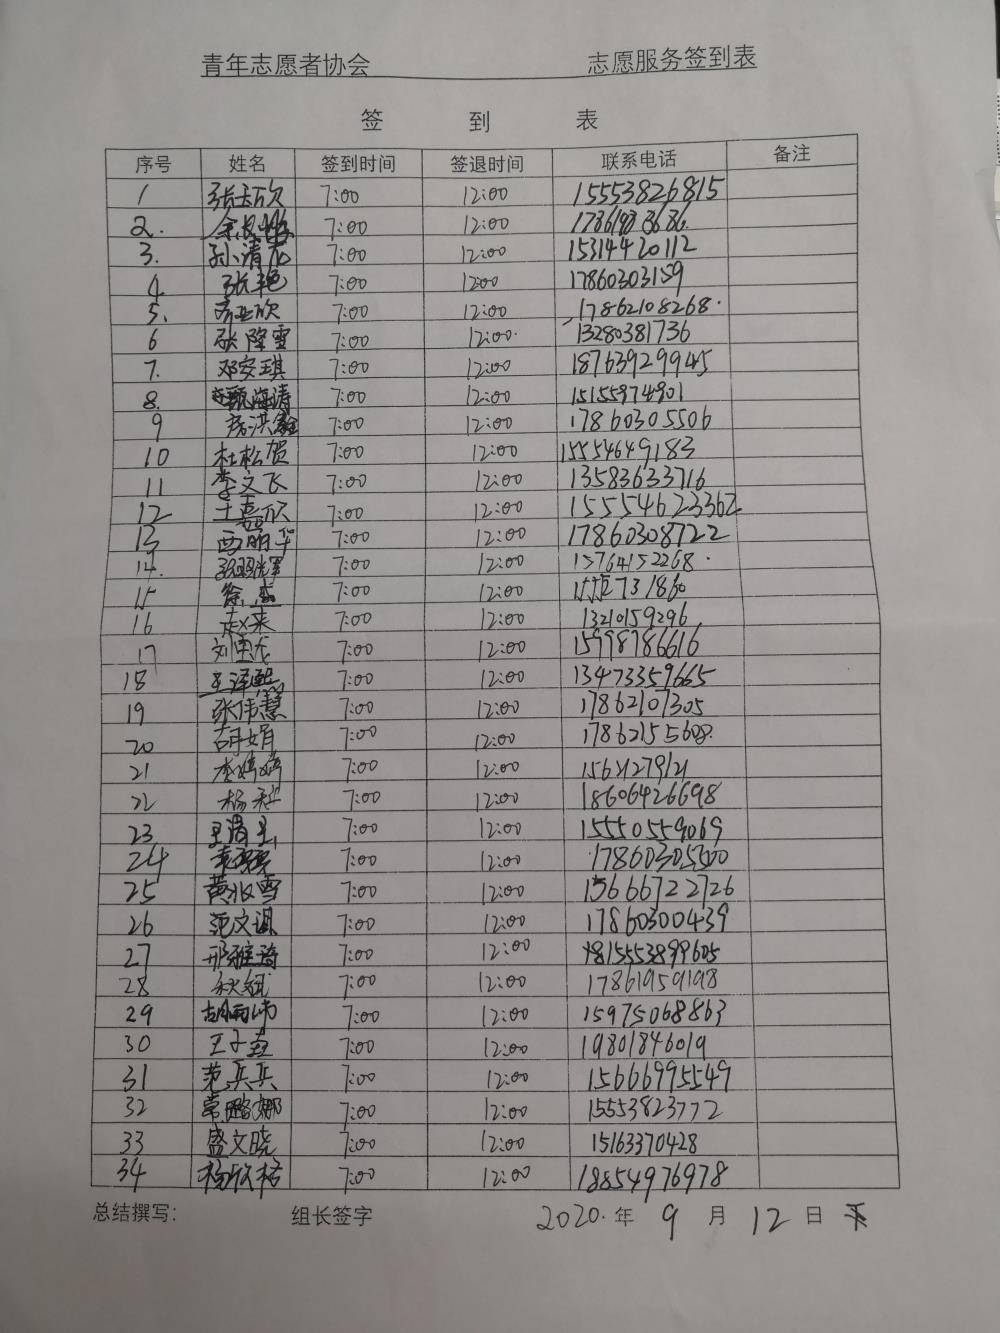 青年志愿者协会 志愿服务签到表
签 到 表
序号 姓名 签到时间 签退时间 联系电话 备注
1 7:00 12:00 15553826815
2. 7:00 12:00
3. 孙清龙 7:00 12:00 15314420112
4 张艳 7:00 12:00 17860303159
5. 7:00 12:00 17862108268.
6 张降雪 7:00 12:00. 13280381736
7. 邓安琪 7:00 12:00 18763929945
8. 甄海涛 7:00 12:00 15155974901
9 7:00 12:00 17860305506
10 杜松贺 7:00 12:00 15554649183
11 李文飞 7:00 12:00 13583633716
12 王嘉欣 7:00 12:00 15554623362
13 西明华 7:00 12:00 17860308722
14. 7:00 12:00 15764152268.
15 徐杰 7:00 12:00
16 赵荣 7:00 12:00 13210159296
17 7:00 12:00 15998786616
18 王泽熙 7:00 12:00 13473359665
19 张伟慧 7:00 12:00 17862107305
20 胡娟 7:00 12:00 17862155608.
21 李婷婷 7:00 12:00
22 杨科 7:00 12:00 18606426698
23 7:00 12:00 15550559069
24 7:00 12:00 17860305500
25 黄冰雪 7:00 12:00 15666722726
26 7:00 12:00 17860300439
27 邢雅琦 7:00 12:00
28 7:00 12:00 17861959198
29 7:00 12:00 15975068863
30 7:00 12:00 19801846019
31 范兵兵 7:00 12:00 15666995549
32 常璐娜 7:00 12:00 15553823772
33 盛文晓 7:00 12:00 15163370428
34 杨欣格 7:00 12:00 18854976978
总结撰写： 组长签字 2020.年 9 月 12 日